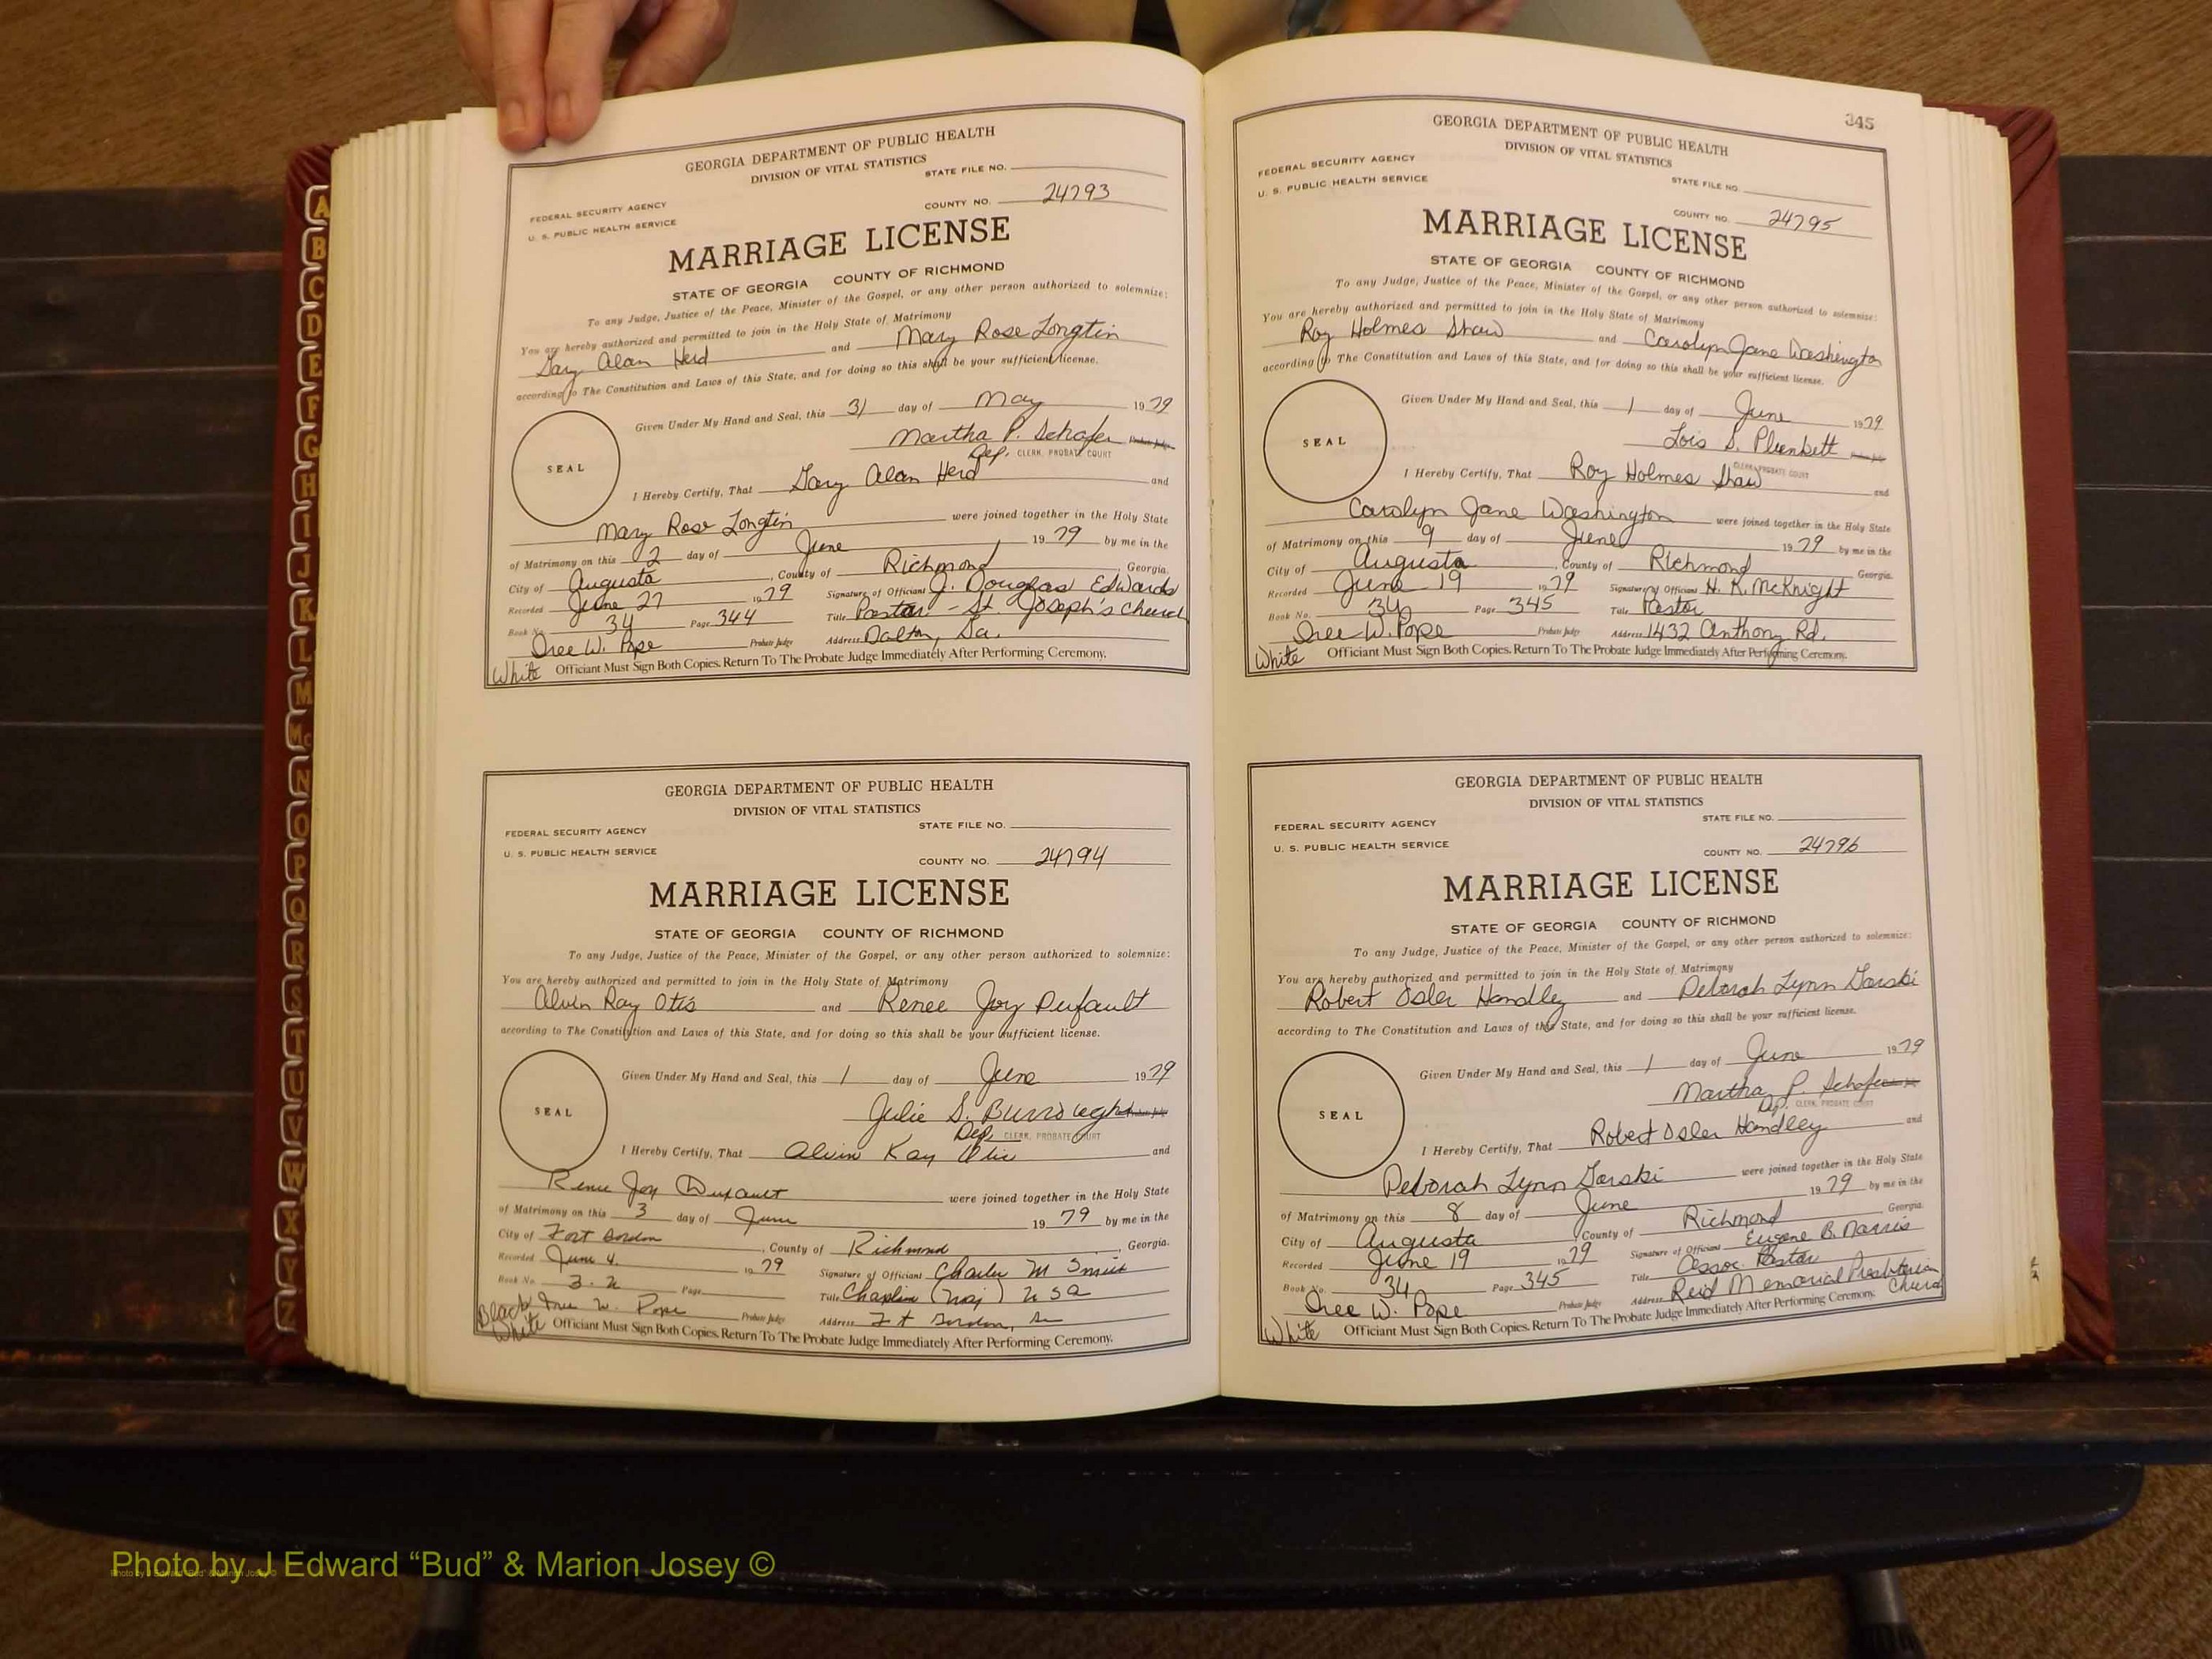 A
B
C
D
E
F
G
H
I
J
K
L
M
Mc
N
O
P
Q
R
S
T
U
V
W
X
Y
Z
GEORGIA DEPARTMENT OF PUBLIC HEALTH
DIVISION OF VITAL STATISTICS
STATE FILE NO.
FEDERAL SECURITY AGENCY
COUNTY NO. 24793
U. S. PUBLIC HEALTH SERVICE
MARRIAGE LICENSE
STATE OF GEORGIA COUNTY OF RICHMOND
To any Judge, Justice of the Peace, Minister of the Gospel, or any other person authorized to solemnize:
You are hereby authorized and permitted to join in the Holy State of Matrimony
Gary Alan Herd and Mary Rose Longtin
according to The Constitution and Laws of this State, and for doing so this shall be your sufficient license.
Given Under My Hand and Seal, this 31 day of May 1979
Martha P. Schafer Probate Judge
Dep. CLERK, PROBATE COURT
SEAL
I Hereby Certify, That Gary Alan Herd and
Mary Rose Longtin were joined together in the Holy State
of Matrimony on this 2 day of June 1979 by me in the
City of Augusta, County of Richmond, Georgia.
Recorded June 27 1979 Signature of Officiant J. Douglas Edwards
Book No. 34 Page 344 Title Pastor - St Joseph's Church
Iree W. Pope Probate Judge Address Dalton, Ga.
White Officiant Must Sign Both Copies. Return To The Probate Judge Immediately After Performing Ceremony.
GEORGIA DEPARTMENT OF PUBLIC HEALTH
DIVISION OF VITAL STATISTICS
FEDERAL SECURITY AGENCY STATE FILE NO.
U. S. PUBLIC HEALTH SERVICE COUNTY NO. 24794
MARRIAGE LICENSE
STATE OF GEORGIA COUNTY OF RICHMOND
To any Judge, Justice of the Peace, Minister of the Gospel, or any other person authorized to solemnize:
You are hereby authorized and permitted to join in the Holy State of Matrimony
Alvin Ray Otis and Renee Joy Dufault
according to The Constitution and Laws of this State, and for doing so this shall be your sufficient license.
Given Under My Hand and Seal, this 1 day of June 1979
Julie S. Burroughs Probate Judge
Dep. CLERK, PROBATE COURT
SEAL
I Hereby Certify, That Alvin Ray Otis and
Renee Joy Dufault were joined together in the Holy State
of Matrimony on this 3 day of June 1979 by me in the
City of Fort Gordon, County of Richmond, Georgia.
Recorded June 4. 1979 Signature of Officiant M Smith
Book No. Page Title Chaplain (Maj) USA
Iree W. Pope Probate Judge Address Ft Gordon, Ga
Black White Officiant Must Sign Both Copies. Return To The Probate Judge Immediately After Performing Ceremony.
345
GEORGIA DEPARTMENT OF PUBLIC HEALTH
DIVISION OF VITAL STATISTICS
FEDERAL SECURITY AGENCY STATE FILE NO.
U. S. PUBLIC HEALTH SERVICE
COUNTY NO. 24795
MARRIAGE LICENSE
STATE OF GEORGIA COUNTY OF RICHMOND
To any Judge, Justice of the Peace, Minister of the Gospel, or any other person authorized to solemnize:
You are hereby authorized and permitted to join in the Holy State of Matrimony
Roy Holmes Shaw and Carolyn Jane Washington
according to The Constitution and Laws of this State, and for doing so this shall be your sufficient license.
Given Under My Hand and Seal, this 1 day of June 1979
Lois S. Plunkett Probate Judge
CLERK, PROBATE COURT
SEAL
I Hereby Certify, That Roy Holmes Shaw and
Carolyn Jane Washington were joined together in the Holy State
of Matrimony on this 9 day of June 1979 by me in the
City of Augusta, County of Richmond Georgia.
Recorded June 19 1979 Signature of Officiant H. K. McKnight
Book No. 34 Page 345 Title Pastor
Iree W. Pope Probate Judge Address 1432 Anthony Rd.
White Officiant Must Sign Both Copies. Return To The Probate Judge Immediately After Performing Ceremony.
GEORGIA DEPARTMENT OF PUBLIC HEALTH
DIVISION OF VITAL STATISTICS
FEDERAL SECURITY AGENCY STATE FILE NO.
U. S. PUBLIC HEALTH SERVICE COUNTY NO. 24796
MARRIAGE LICENSE
STATE OF GEORGIA COUNTY OF RICHMOND
To any Judge, Justice of the Peace, Minister of the Gospel, or any other person authorized to solemnize:
You are hereby authorized and permitted to join in the Holy State of Matrimony
Robert Osler Handley and Deborah Lynn Garski
according to The Constitution and Laws of this State, and for doing so this shall be your sufficient license.
Given Under My Hand and Seal, this 1 day of June 1979
Martha P. Schafer
Dep. CLERK, PROBATE COURT
SEAL
I Hereby Certify, That Robert Osler Handley and
Deborah Lynn Garski were joined together in the Holy State
of Matrimony on this 8 day of June 1979 by me in the
City of Augusta County of Richmond Georgia.
Recorded June 19 1979 Signature of Officiant Eugene B. Norris
Book No. 34 Page 345 Title Assoc. Pastor
Iree W. Pope Probate Judge Address Reid Memorial Presbyterian Church
White Officiant Must Sign Both Copies. Return To The Probate Judge Immediately After Performing Ceremony.
Photo by J Edward “Bud” & Marion Josey ©